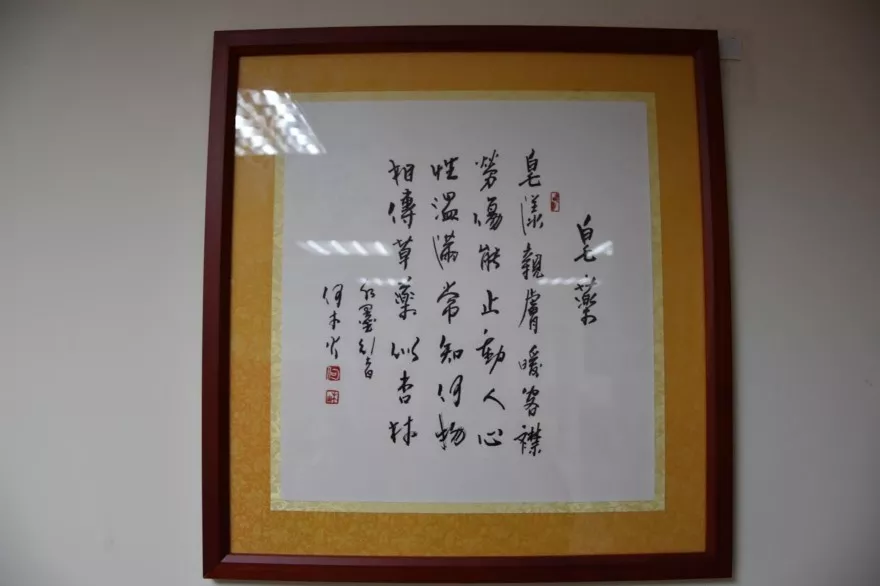 皂藥
皂漾親膚暖膺襟
勞傷能止動人心
性溫滿常知何物
相傳草藥似杏林
水墨影音
何木火